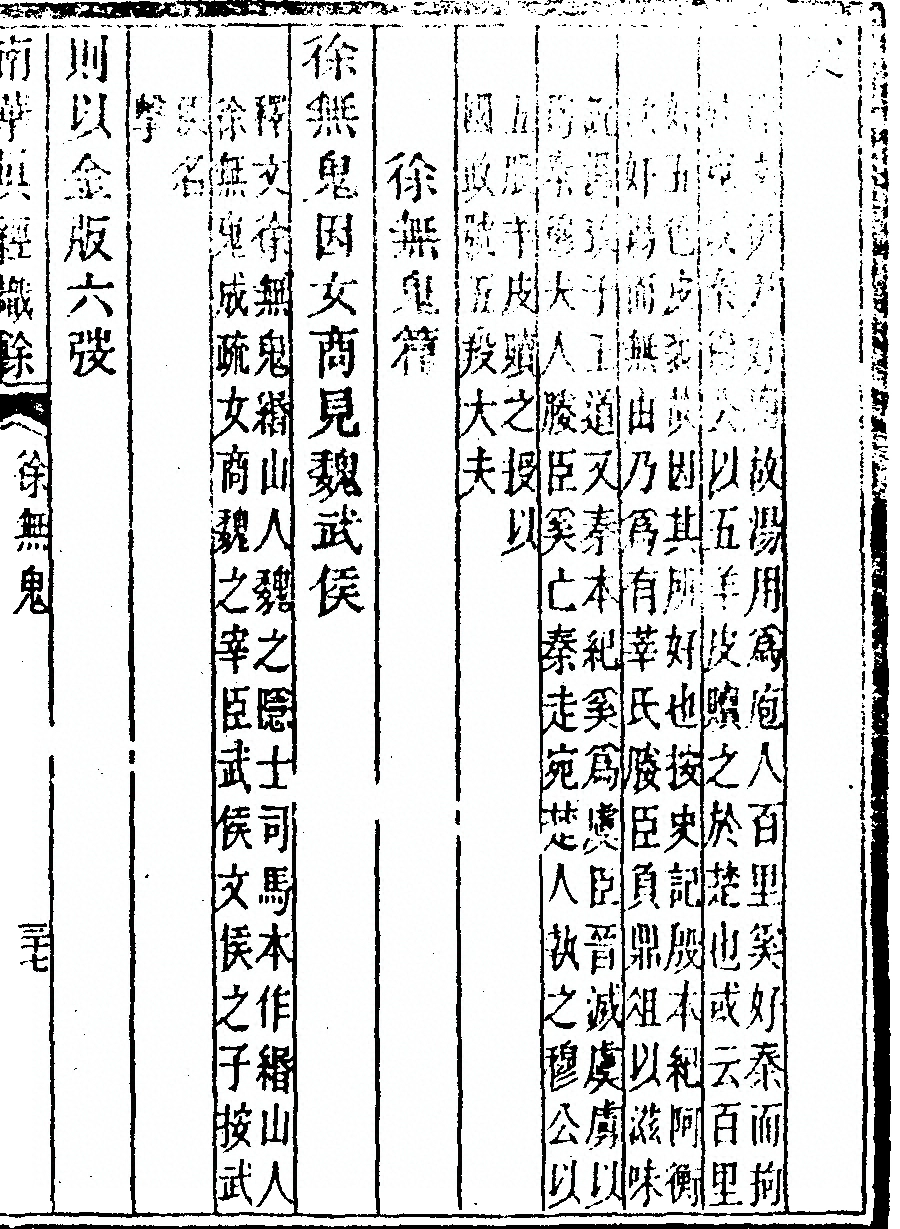 之
釋文伊尹好廚故湯用爲庖人百里奚好秦而拘
於宛故秦穆公以五羊皮贖之於楚也或云百里
好五色皮裘故因其所好也按史記殷本紀阿衡
欲奸湯而無由乃爲有莘氏媵臣負鼎俎以滋味
說湯致于王道又秦本紀奚爲虞臣晉滅虞虜以
爲秦穆夫人媵臣奚亡秦走宛楚人執之穆公以
五羖羊皮贖之授以
國政號五羖大夫
徐無鬼篇
徐無鬼因女商見魏武侯
釋文徐無鬼緡山人魏之隱士司馬本作緡山人
徐無鬼成疏女商魏之宰臣武侯文侯之子按武
侯名
擊
則以金版六弢
南華眞經識餘 徐無鬼 三十七